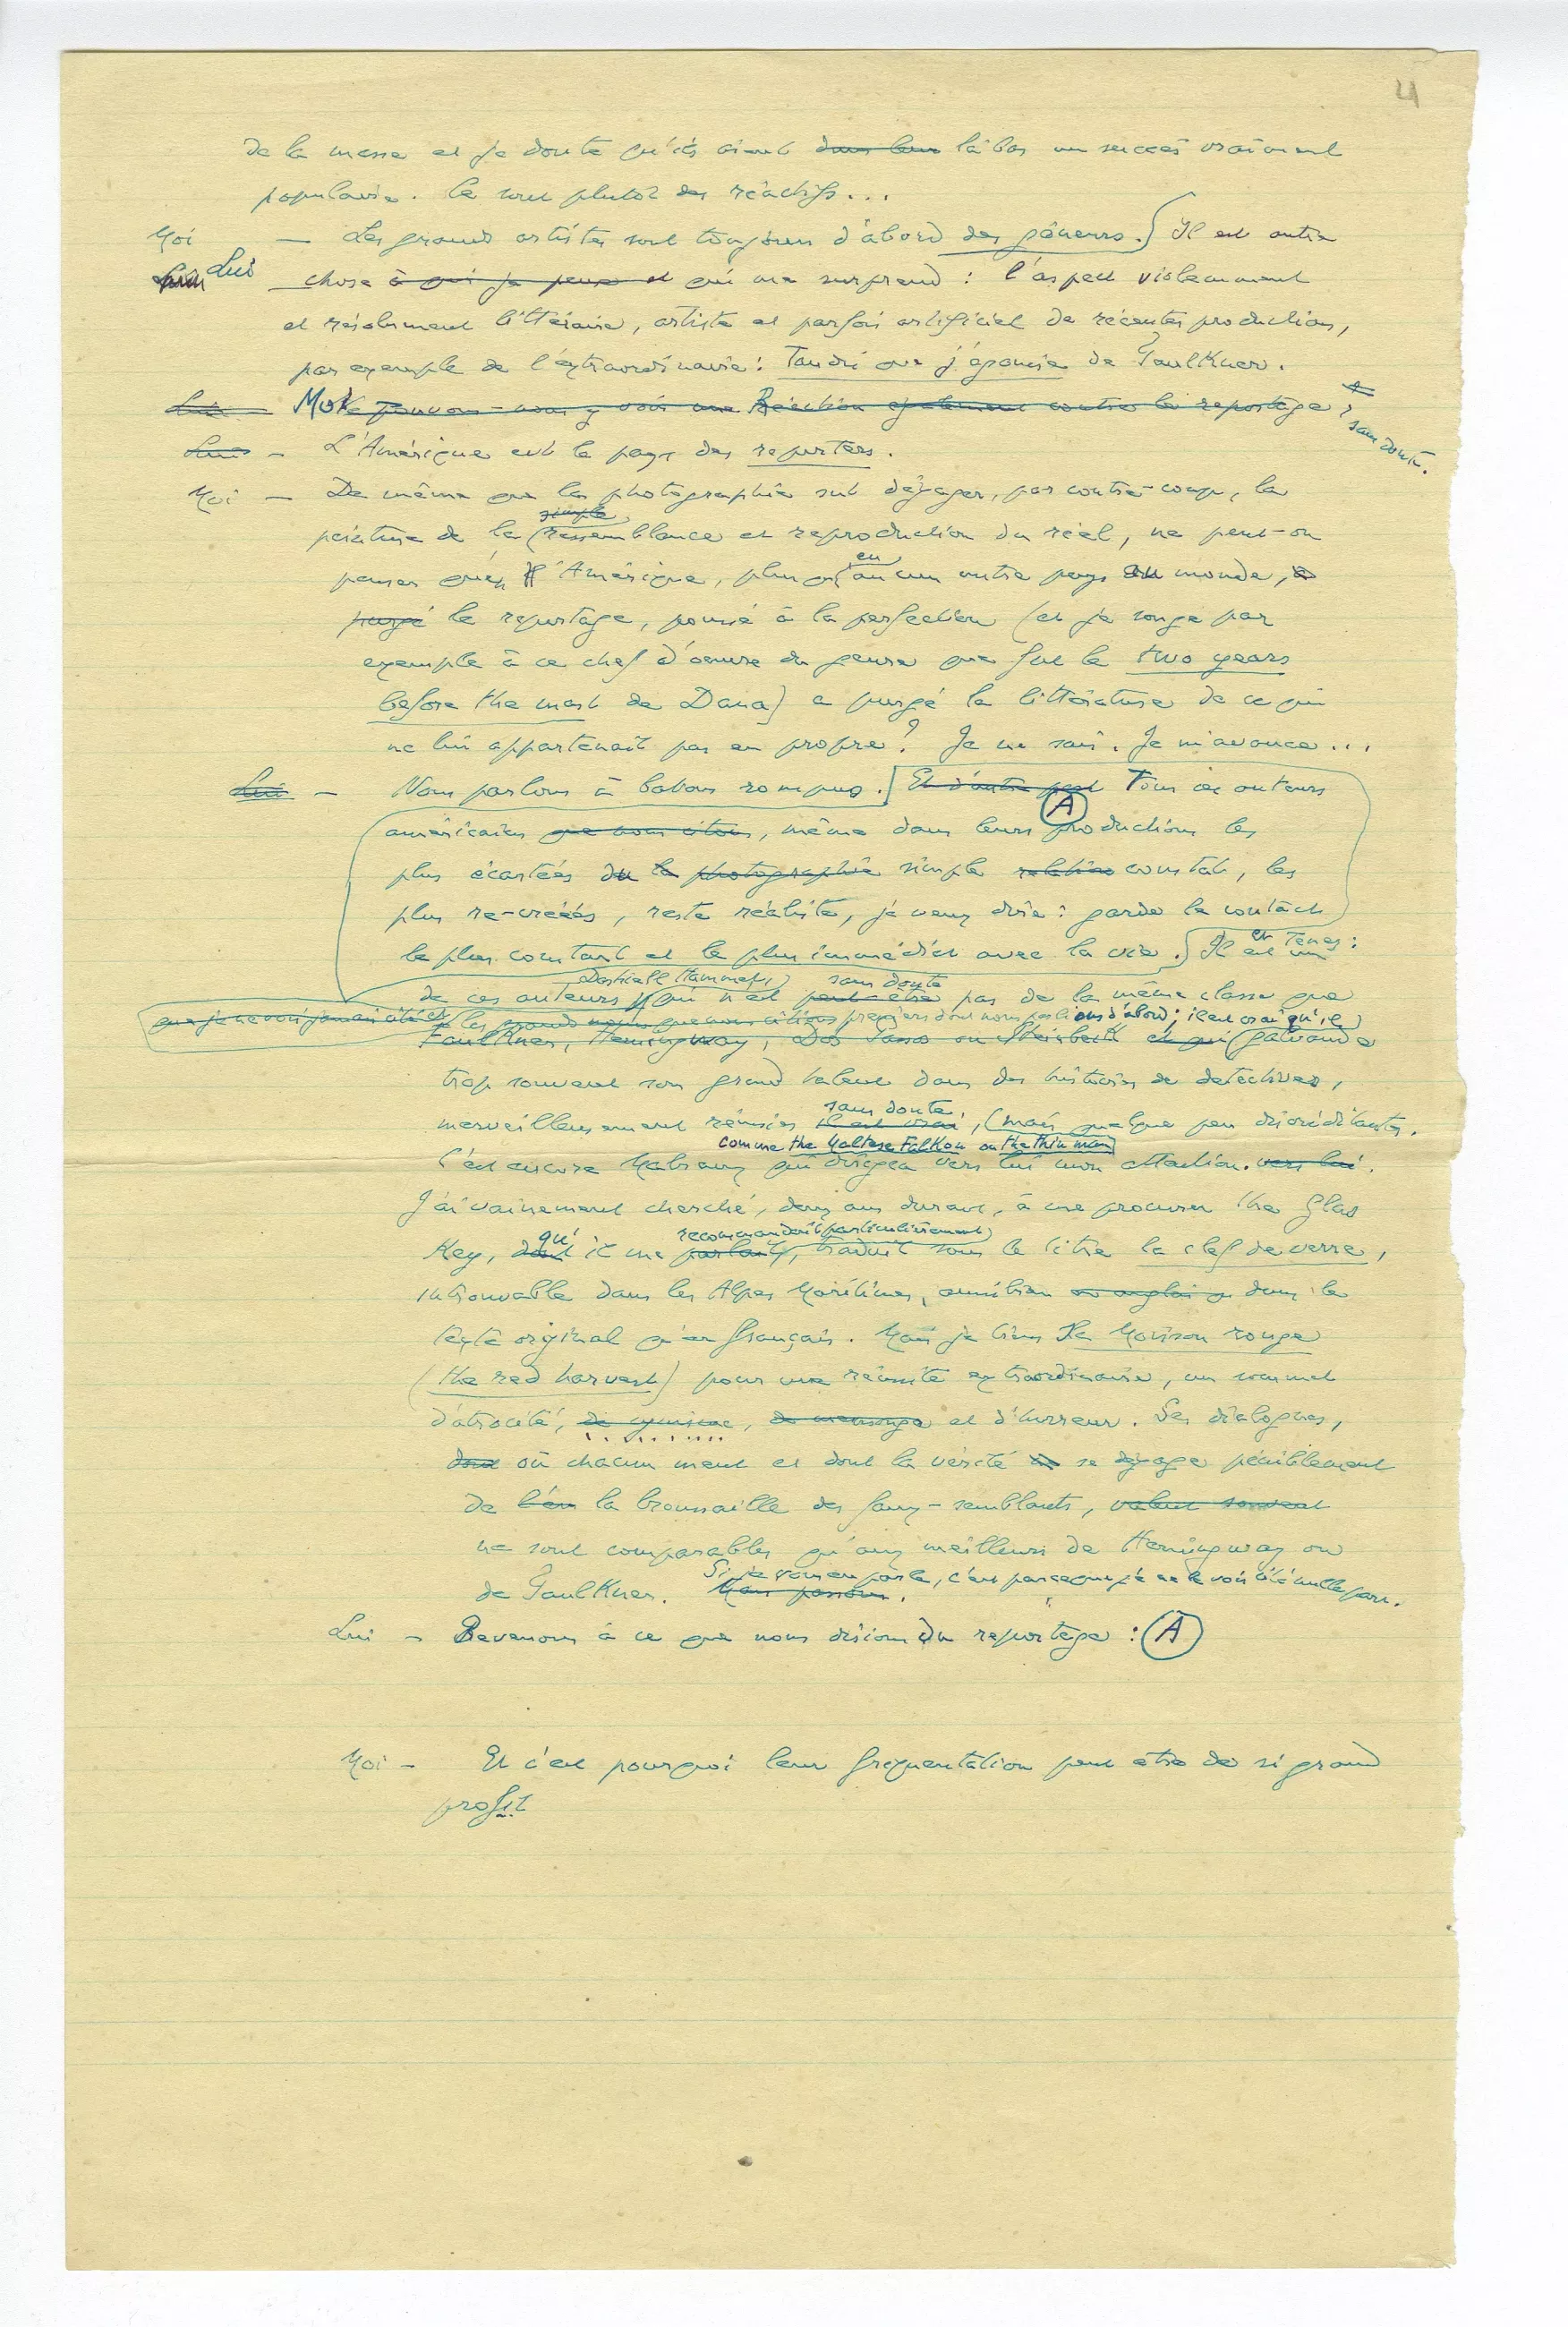 4
de la masse et je doute qu'ils aient dans leur là bas un succès vraiment
populaire. Ce sont plutôt des réactifs...
Moi — Les grands artistes sont toujours d'abord des gêneurs. Il est autre
Lui chose à qui je pense et qui me surprend : l'aspect violemment
et résolument littéraire, artiste et parfois artificiel de récentes productions,
par exemple de l'extraordinaire : Tandis que j'agonise de Faulkner.
Lui — Moi Ne pouvons-nous y voir une Réaction également contre le reportage, sans doute.
Lui — L'Amérique est le pays des reporters.
Moi — De même que la photographie sut dégager, par contre-coup, la
simple
peinture de la ressemblance et reproduction du réel, ne peut-on
en
penser qu'en l'Amérique, plus qu'aucun autre pays du monde, a
purgé le reportage, poussé à la perfection (et je songe par
exemple à ce chef d'oeuvre du genre que fut le two years
before the mast de Dana) a purgé la littérature de ce qui
ne lui appartenait pas en propre ? Je ne sais. Je m'avance...
Lui — Nous parlons à batons rompus. Et d'autre part Tous ces auteurs
A
américains que nous citons, même dans leurs productions les
plus écartées du la photographie simple relation constat, les
plus re-créées, reste réaliste, je veux dire : garde le contact
le plus constant et le plus immédiat avec la vie. Il en est un Tenez :
Dashiell Hammett, sans doute
de ces auteurs, qui n'est peut-être pas de la même classe que
que je ne vois jamais cité et les grands noms que nous citions premiers dont nous parlions d'abord ; il est vrai qu'il
Faulkner, Hemingway, Dos Passos ou Steinbeck et qui galvaude
trop souvent son grand talent dans des histoires de detectives,
sans doute,
merveilleusement réussies il est vrai, mais quelque peu discréditantes.
comme the Maltese Falkon ou the thin man
C'est encore Malraux qui dirigea vers lui mon attention. vers lui.
J'ai vainement cherché, deux ans durant, à me procurer the Glas
qu' recommandait particulièrement
Key, dont il me parlait, traduit sous le titre la clef de verre,
introuvable dans les Alpes Maritimes, aussi bien en anglais dans le
texte original qu'en français. Mais je tiens La Moisson rouge
(the red harvest) pour une réussite extraordinaire, un sommet
d'atrocité, de cynisme, de mensonge et d'horreur. Ses dialogues,
dont où chacun ment et dont la vérité se dégage péniblement
de la broussaille des faux-semblants, valent souvent
ne sont comparables qu'aux meilleurs de Hemingway ou
de Faulkner. Mais passons. Si je vous en parle, c'est parce que je ne le vois cité nulle part.
Lui — Revenons à ce que nous disions du reportage : A
Moi — Et c'est pourquoi leur fréquentation peut etre de si grand
profit